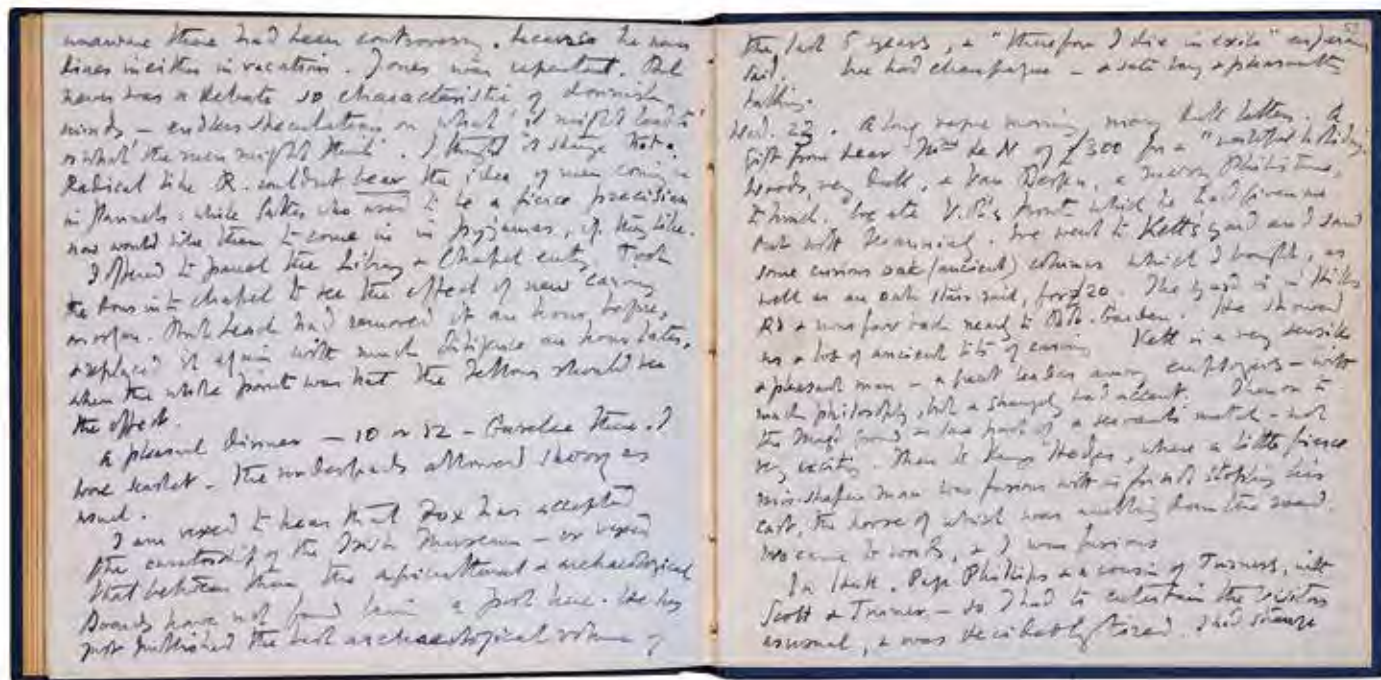 unaware there had been controversy, because he never
dines in either in vacation. Jones was repentant. But
never was a debate so characteristic of donnish
minds – endless speculation on what 'it might lead to'
or what 'the men might think'. I thought it strange that a
Radical like R. couldn't bear the idea of men coming in
in flannels: while who used to be a fierce precisian
now would like them to come in in pyjamas, if they like.
I offered to panel the Library & Chapel entry. Took
the dons into chapel to see the effect of new carving
on organ. But Leach had removed it an hour before,
& replaced it again with much diligence an hour later,
when the whole point was that the Fellows should see
the effect.
A pleasant dinner – 10 or 12 – Gaselee there. I
wore scarlet. The undergrads allowed smoking as
usual.
I am vexed to hear that Fox has accepted
the curatorship of the Museum – or vexed
that between them the agricultural & archaeological
Boards have not found him a post here. He has
just published the best archaeological volume of
53
the last 5 years, & "therefore I die in exile" as
said. We had champagne – & sate long & pleasantly
talking.
22. A long vague morning many dull letters. A
gift from dear Mme de N of £300 for a "
Woods, very dull, & Van a merry Philistine,
to lunch. We ate V. P.'s which he had given me
but with We went to Kett's yard and I saw
some curious oak (ancient) columns which I bought, as
well as an oak stair rail, for £20. The yard is in Hills
Rd & runs far back nearly to Bot. Garden. He showed
us a lot of ancient bits of carving Kett is a very sensible
& pleasant man – a great leader among employers – with
much philosophy, but a strangely bad accent. Then on to
the Magd ground to see part of a servants match – not
very exciting. Then to Kings Hedges, where a little fierce
mis-shapen man was furious with us for not stopping his
cart, the horse of which was ambling down the road.
We came to words, & I was furious
In Hall. Page Phillips & a cousin of Turners, with
Scott & Turner – so I had to entertain the visitors
as usual, & was decidedly bored. I had strange